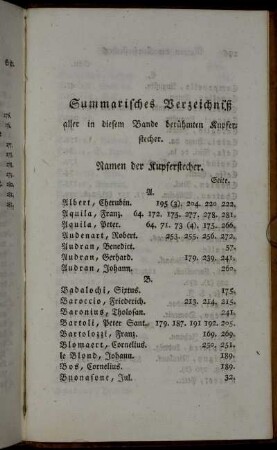 Summarisches Verzeichniß
aller in diesem Bande berühmten Kupfer-
stecher.
Namen der Kupferstecher.
Seite.
A.
Albert, Cherubin. 195 (3). 204. 220. 222.
Aquila, Franz. 64. 172. 173. 277. 278. 281.
Aquila, Peter. 64. 71. 73 (4). 175. 266.
Audenart, Robert. 253. 255. 256. 272.
Audran, Benedict. 57.
Audran, Gerhard. 179. 239. 241.
Audran, Johann. 260.
B.
Badalochi, Sixtus. 175.
Baroccio, Friederich. 213. 214. 215.
Baronius, Tholosan. 241.
Bartoli, Peter Sant. 179. 187. 191 192. 205.
Bartolozzi, Franz. 169. 269.
Blomaert, Cornelius. 250. 251.
le Blond, Johann. 189.
Bos, Cornelius. 189.
Buonasone, Jul. 32.